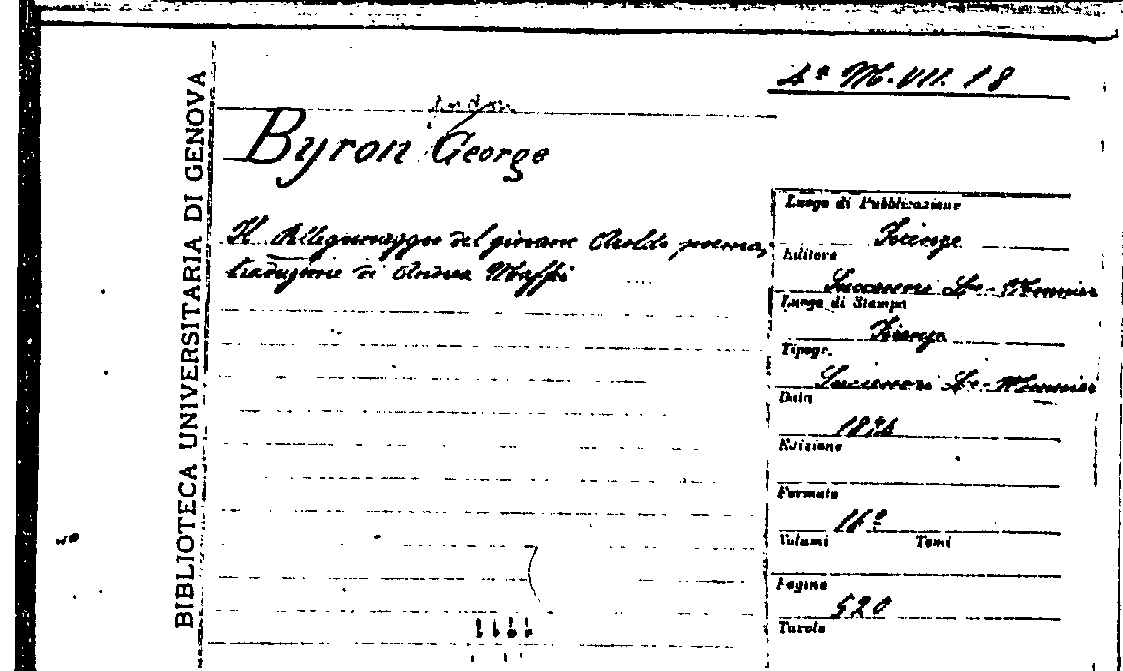 BIBLIOTECA UNIVERSITARIA DI GENOVA
4ª M. VII. 18
Byron George
Il Pellegrinaggio del giovane Aroldo poema,
traduzione di Andrea Maffei
Luogo di Pubblicazione
Firenze
Editore
Successori Le-Monnier
Luogo di Stampa
Firenze
Tipogr.
Successori Le-Monnier
Data
Edizione
Formato
16º
Volumi Tomi
Pagine
520
Tavole